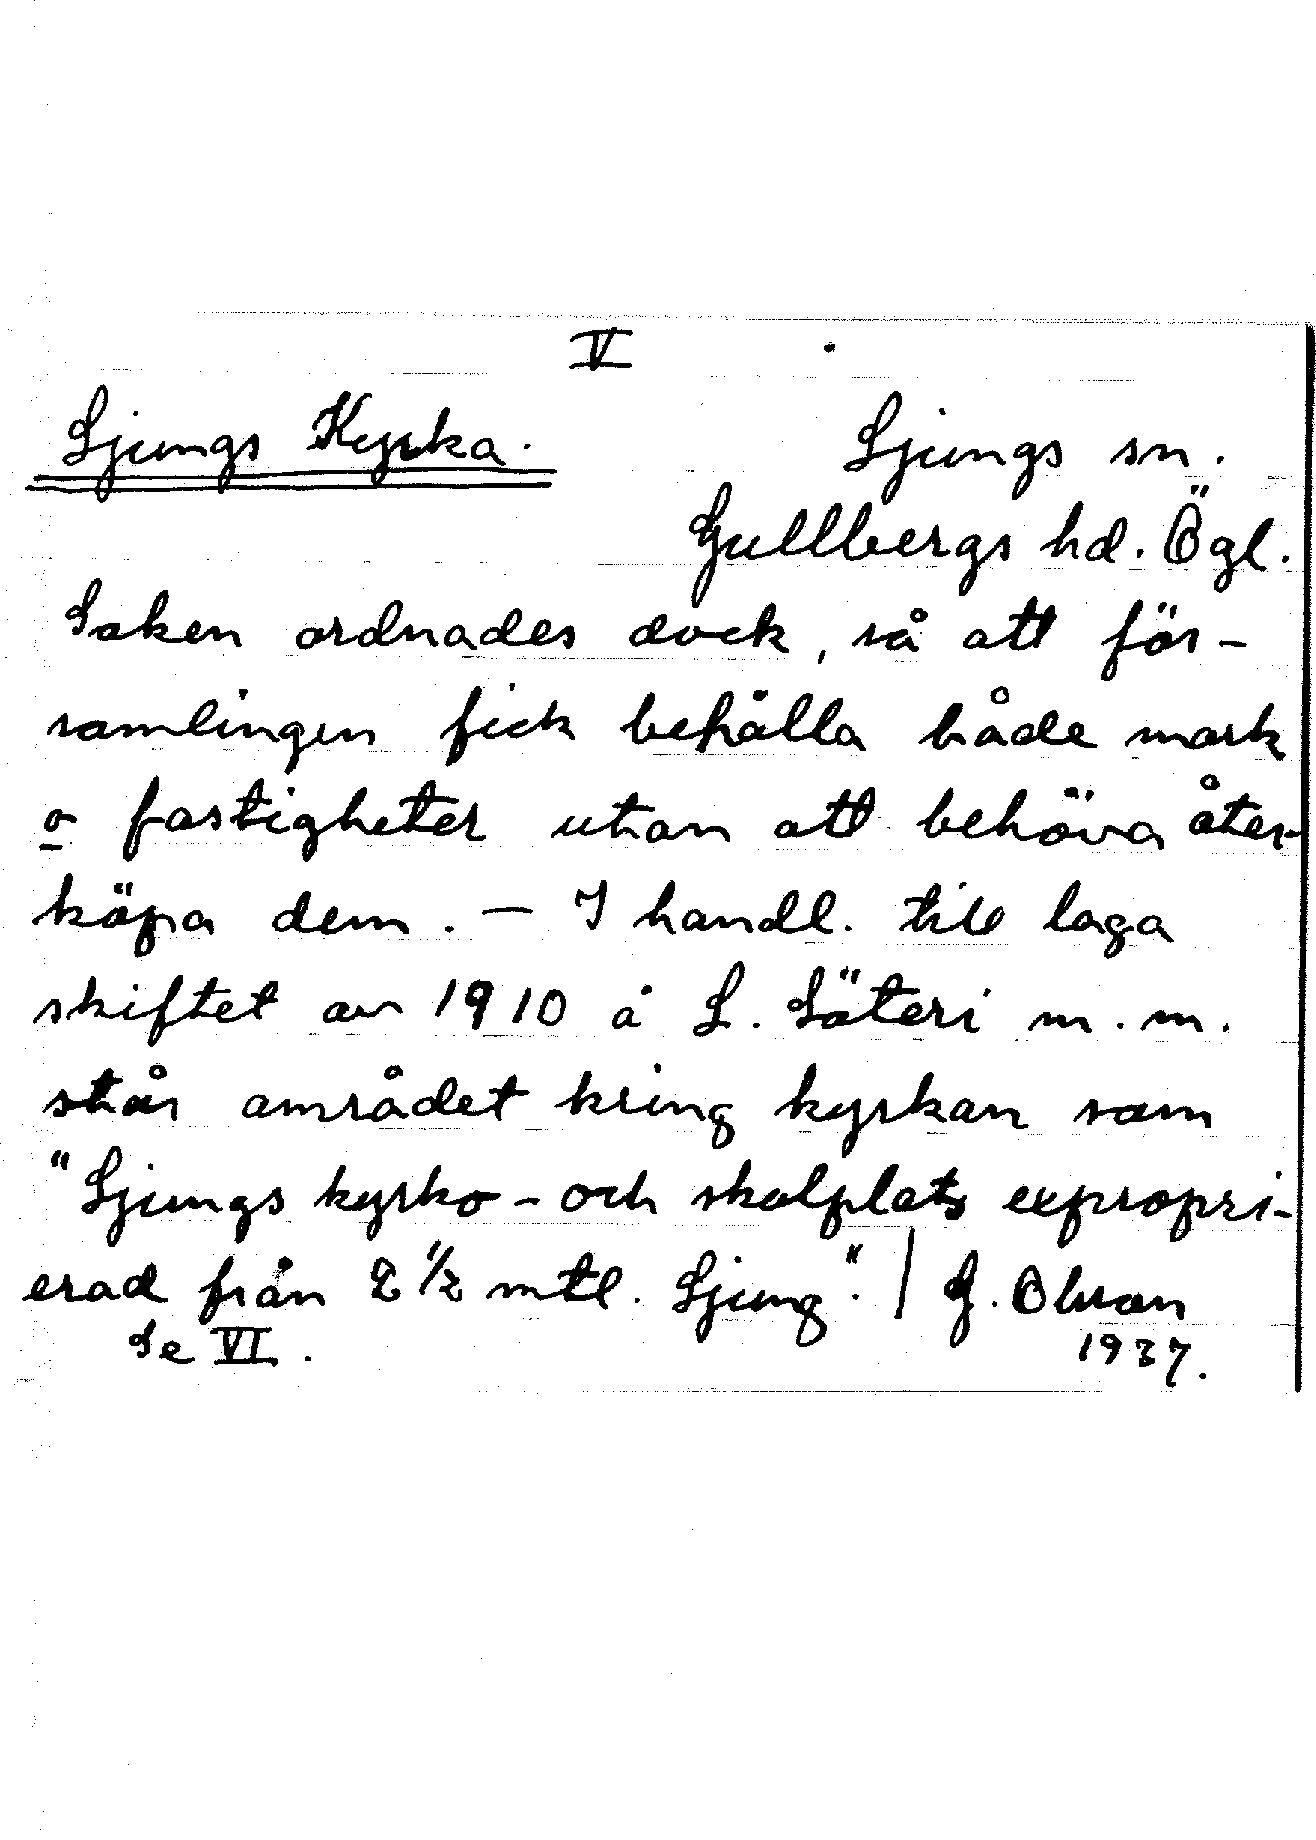 V
Ljungs Kyrka.
Ljungs sn.
Gullbergs hd. Ögl.
Saken ordnades dock, så att för-
samlingen fick behålla både mark
o fastigheter utan att behöva åter-
köpa dem. — I handl. till laga
skiftet av 1910 å L. Säteri m.m.
står området kring kyrkan som
"Ljungs kyrko- och skolplats expropri-
erad från 2 1/2 mtl. Ljung". / G. Olsson
Se VI.
1937.